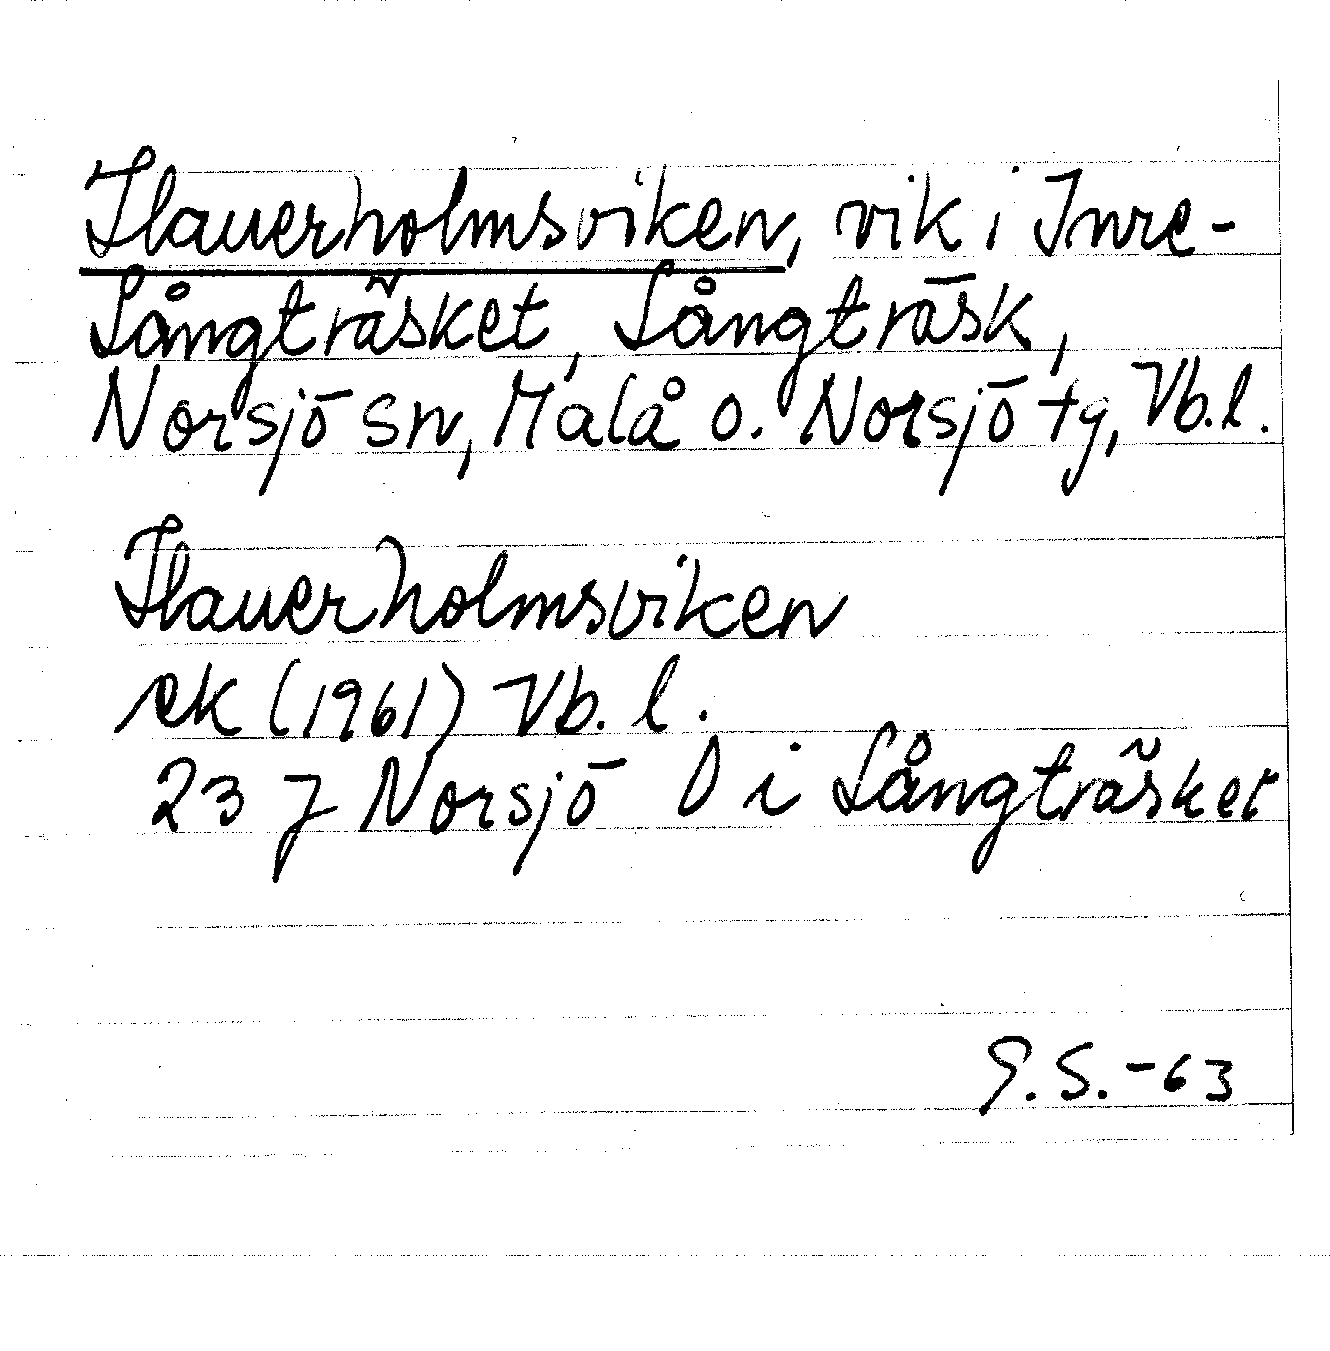 Flauerholmsviken, vik i Inre-
Långträsket, Långträsk,
Norsjö sn, Malå o. Norsjö tg, Vb.l.
Flauerholmsviken
ek (1961) Vb. l.
23 J Norsjö O i Långträsket
G.S.-63